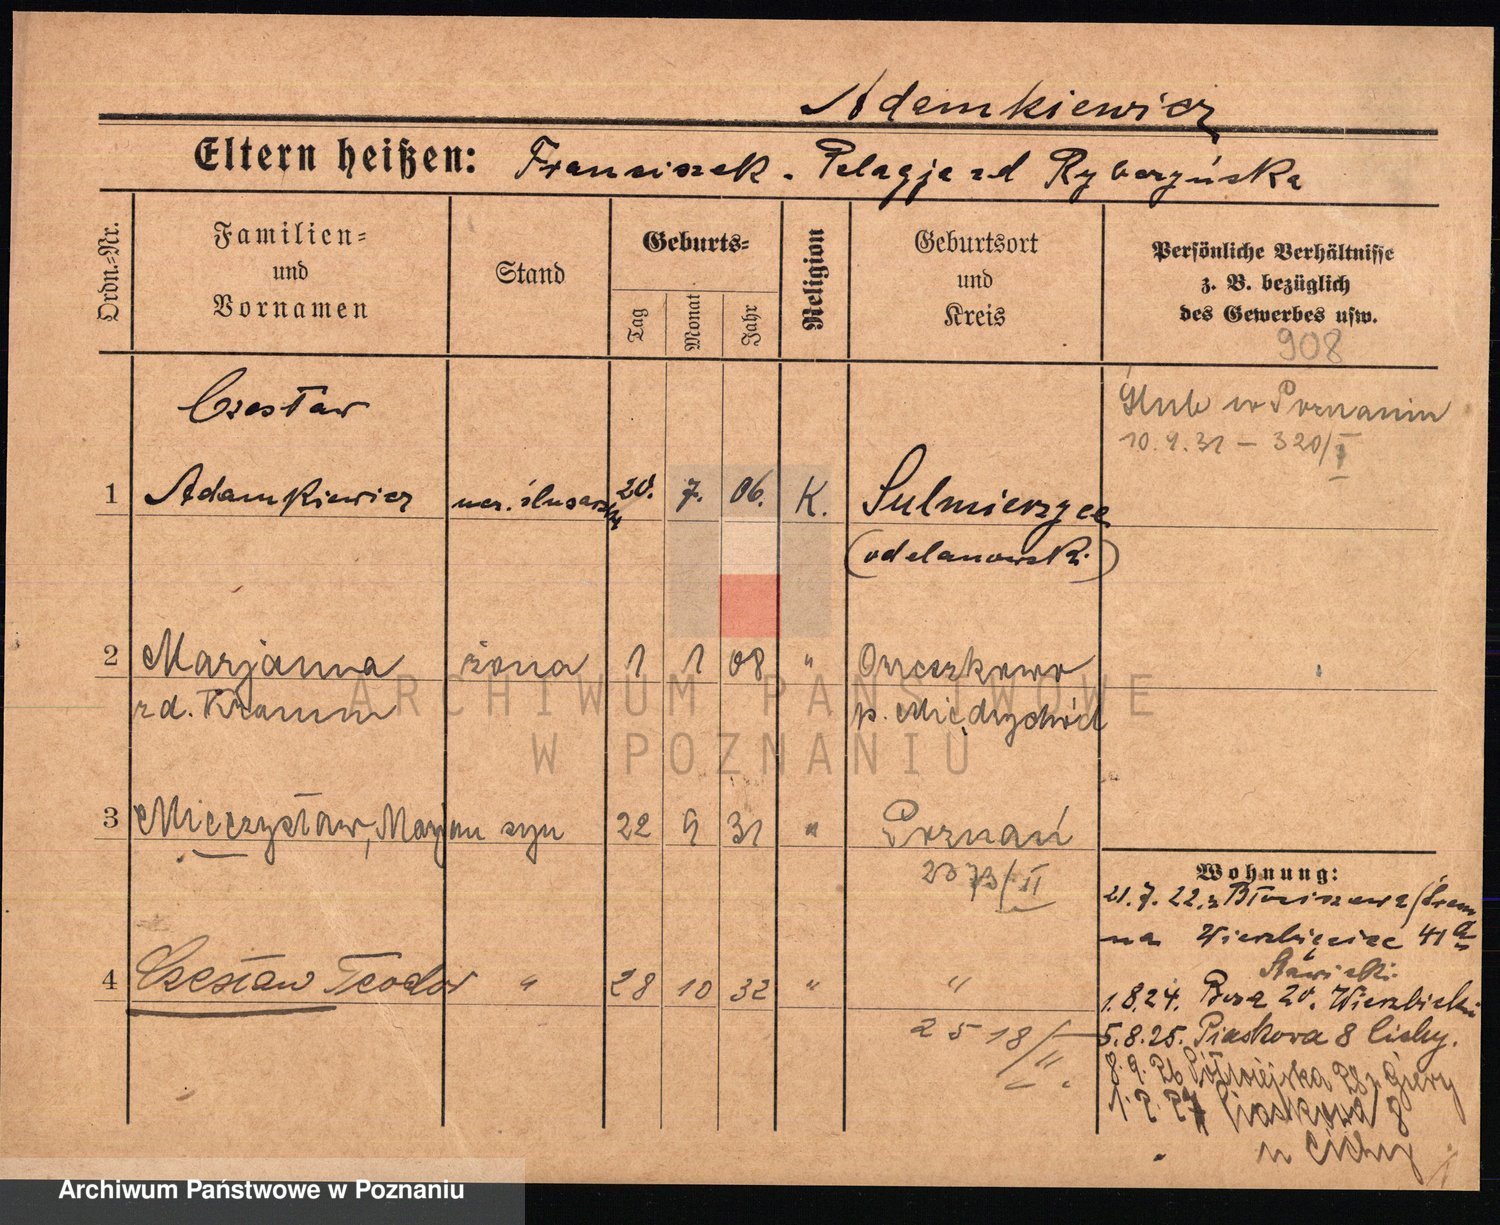 Adamkiewicz
Eltern heißen: Franciszek - Pelagja zd Rybczyńska
Ordn.=Nr.
Familien=
und
Vornamen
Stand
Geburts=
Tag
Monat
Jahr
Religion
Geburtsort
und
Kreis
Persönliche Verhältnisse
z. B. bezüglich
des Gewerbes usw.
908
Czesław
Ślub w Poznaniu
10.1.31 - 320/I
1 Adamkiewicz ucz. ślusarski 20. 7. 06. K. Sulmierzyce
(odolanowski)
2 Marjanna żona 1 1 08 "
zd. Kramm p. Międzychód
3 Mieczysław, Marjan syn 22 9 31 " Poznań
2073/II
4 Czesław Teodor " 28 10 32 " "
2518/II
Wohnung:
21.7.22 z Błociszewa/Śrem
na Wierzbięcice 41a
Stawicki
1.8.24. Boza 20. Wierzbicki
5.8.25. Piaskowa 8 Cichy.
8.9.26 Półwiejska 28 z Giery
1.2.27 Piaskowa 8
u Cichy
ARCHIWUM PAŃSTWOWE
W POZNANIU
Archiwum Państwowe w Poznaniu